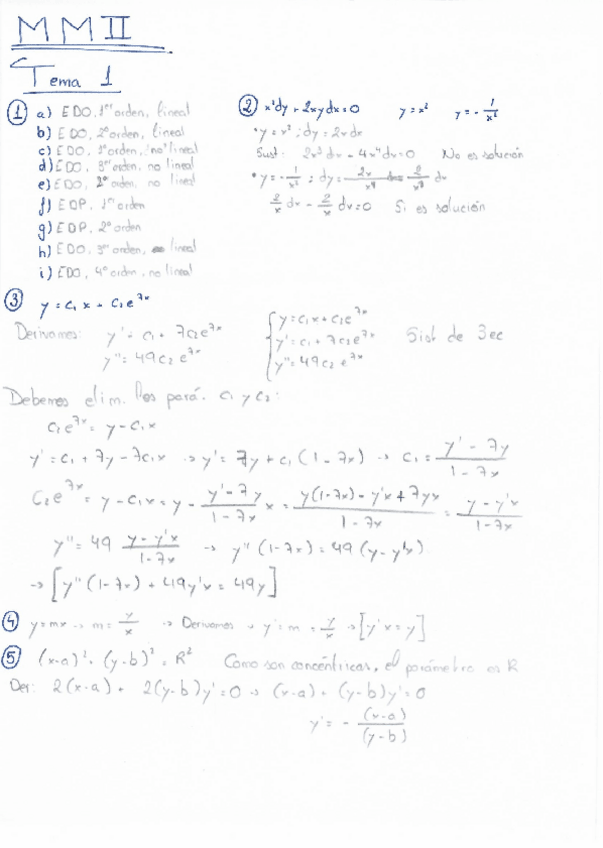 MMII
Tema 1
① a) EDO, 1er orden, lineal
b) EDO, 2º orden, lineal
c) EDO, 1er orden, no lineal
d) EDO, 3er orden, no lineal
e) EDO, 2º orden, no lineal
f) EDP, 1er orden
g) EDP, 2º orden
h) EDO, 3er orden, lineal
i) EDO, 4º orden, no lineal
② x²dy + 2xydx = 0 y = x² y = -1/x²
• y = x²; dy = 2xdx
Sust: 2x³dx + 4x⁴dx = 0 No es solución
• y = -1/x²; dy = 2x/x⁴ dx = 2/x³ dx
2/x dx - 2/x dx = 0 Si es solución
③ y = c₁x + c₂e^7x
Derivamos: y' = c₁ + 7c₂e^7x
y'' = 49c₂e^7x
{ y = c₁x + c₂e^7x
y' = c₁ + 7c₂e^7x
y'' = 49c₂e^7x
Sist de 3 ec
Debemos elim. los pará. c₁ y c₂:
c₂e^7x = y - c₁x
y' = c₁ + 7y - 7c₁x → y' = 7y + c₁(1 - 7x) → c₁ = (y' - 7y)/(1 - 7x)
c₂e^7x = y - c₁x = y - (y' - 7y)/(1 - 7x) x = (y(1 - 7x) - y'x + 7yx)/(1 - 7x) = (y - y'x)/(1 - 7x)
y'' = 49 (y - y'x)/(1 - 7x) → y''(1 - 7x) = 49(y - y'x)
→ [y''(1 - 7x) + 49y'x = 49y]
④ y = mx → m = y/x → Derivamos → y' = m = y/x → [y'x = y]
⑤ (x-a)² + (y-b)² = R² Como son concéntricas, el parámetro es R
Der: 2(x-a) + 2(y-b)y' = 0 → (x-a) + (y-b)y' = 0
y' = - (x-a)/(y-b)